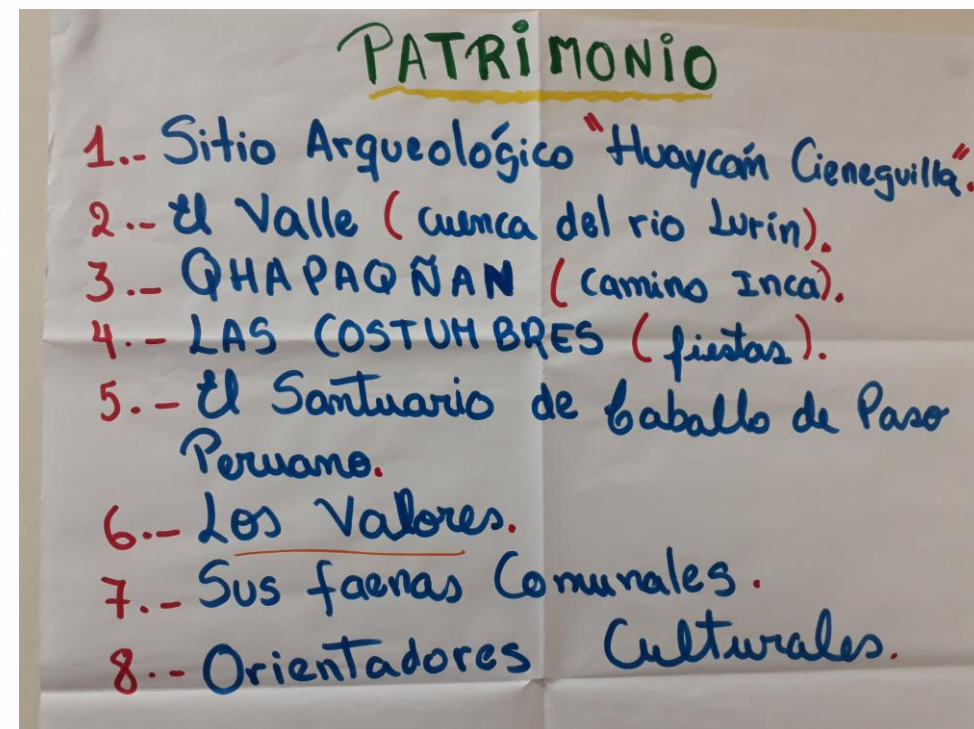 PATRIMONIO
1.- Sitio Arqueológico "Huaycán Cieneguilla".
2.- El Valle (cuenca del rio Lurín).
3.- QHAPAQ ÑAN (Camino Inca).
4.- LAS COSTUMBRES (fiestas).
5.- El Santuario de Caballo de Paso
Peruano.
6.- Los Valores.
7.- Sus faenas Comunales.
8.- Orientadores Culturales.